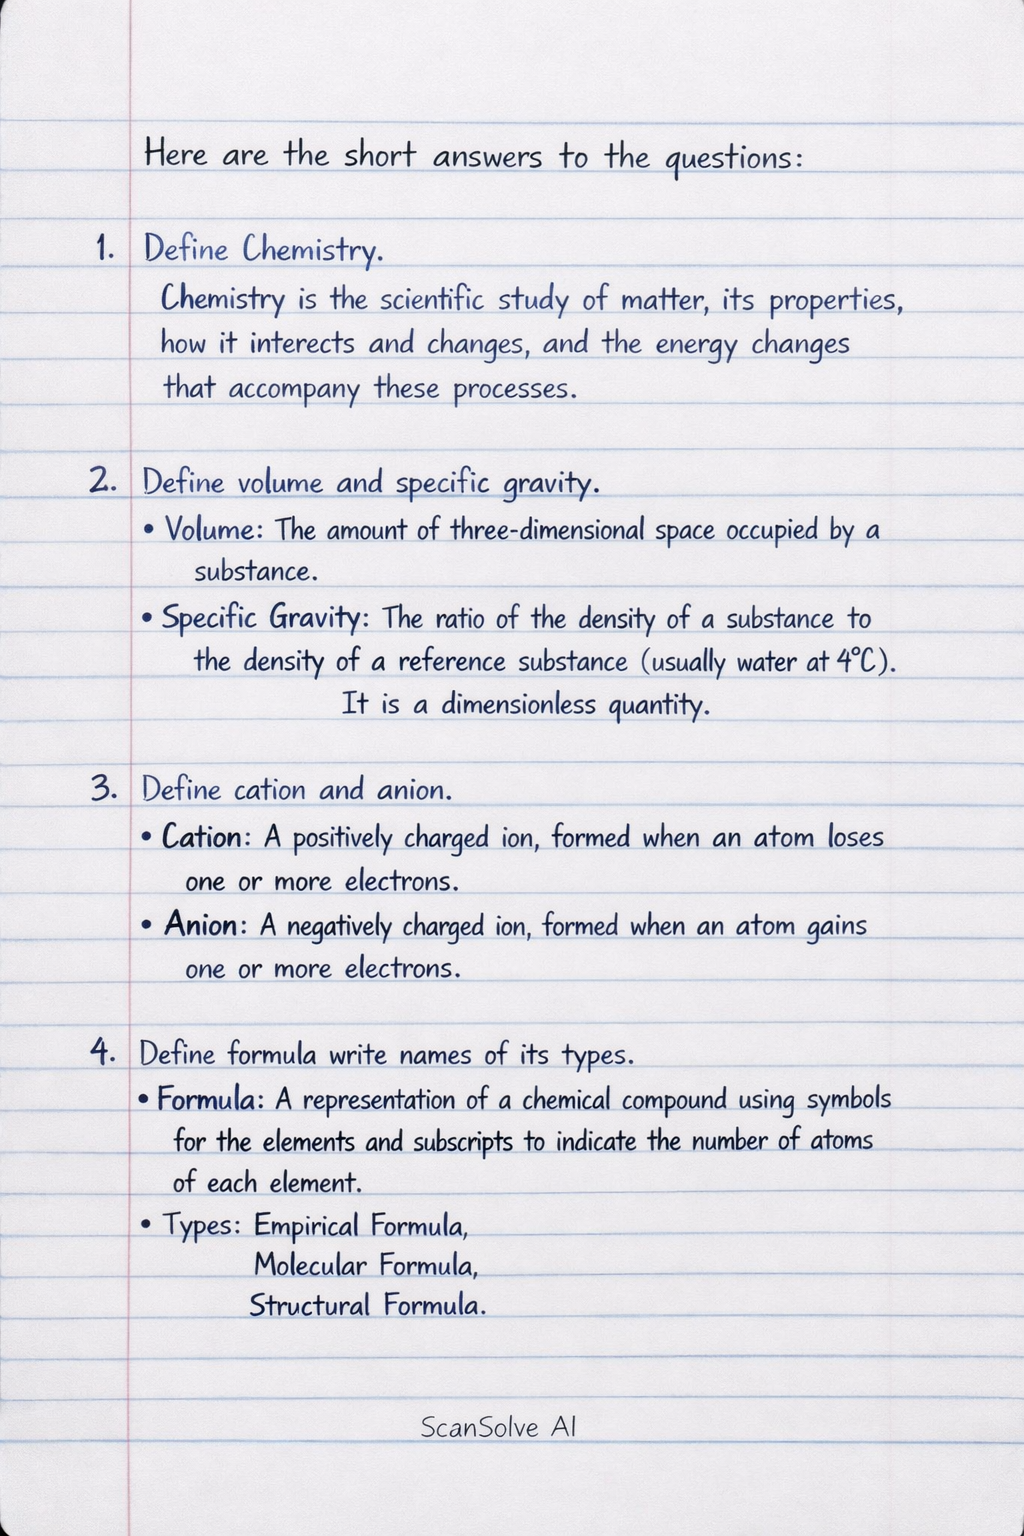 Here are the short answers to the questions:
1. Define Chemistry.
Chemistry is the scientific study of matter, its properties,
how it interects and changes, and the energy changes
that accompany these processes.
2. Define volume and specific gravity.
• Volume: The amount of three-dimensional space occupied by a
substance.
• Specific Gravity: The ratio of the density of a substance to
the density of a reference substance (usually water at 4°C).
It is a dimensionless quantity.
3. Define cation and anion.
• Cation: A positively charged ion, formed when an atom loses
one or more electrons.
• Anion: A negatively charged ion, formed when an atom gains
one or more electrons.
4. Define formula write names of its types.
• Formula: A representation of a chemical compound using symbols
for the elements and subscripts to indicate the number of atoms
of each element.
• Types: Empirical Formula,
Molecular Formula,
Structural Formula.
ScanSolve AI